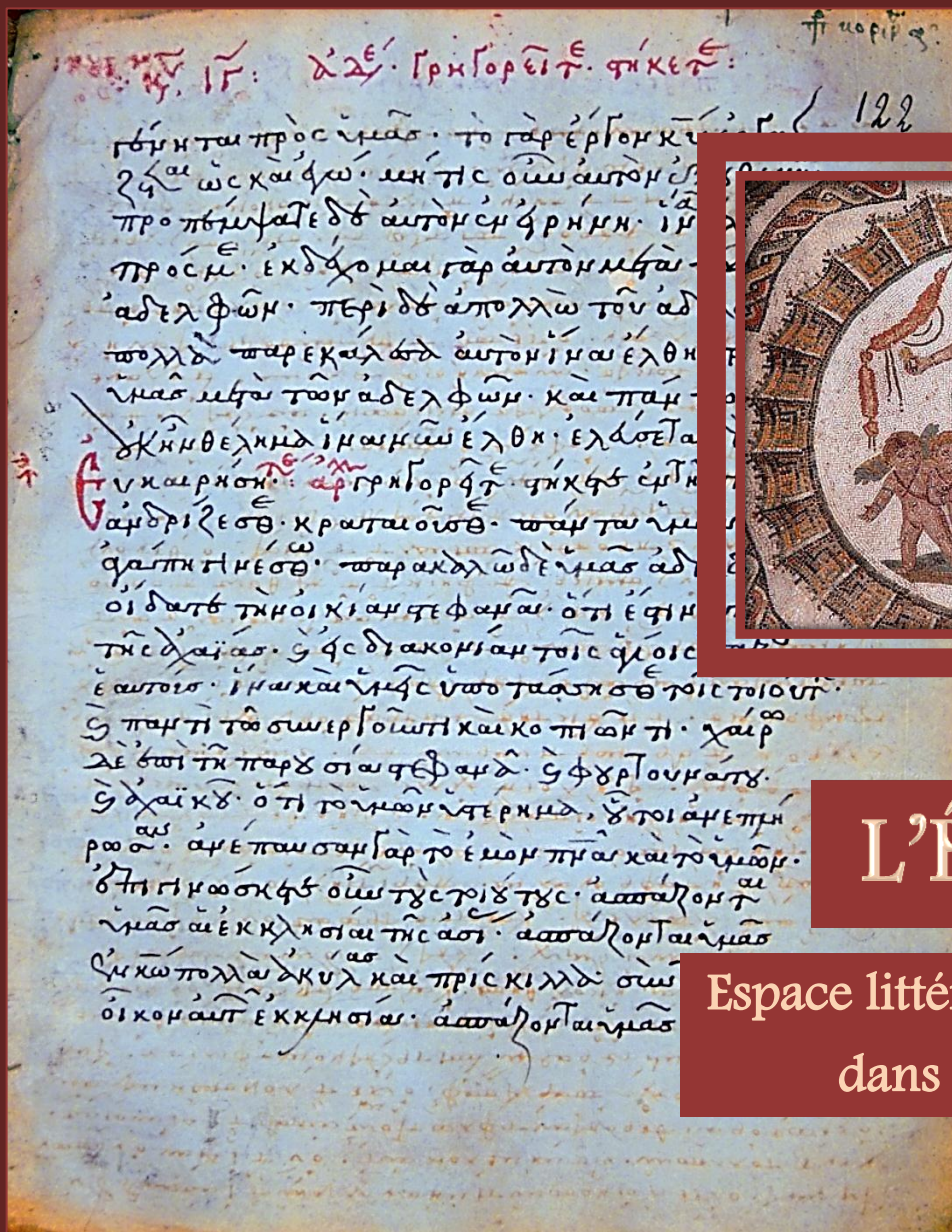 ιγ: ἀδε. γρηγορεῖτε. στήκετε:
122
γένηται πρὸς ὑμᾶς· τὸ γὰρ ἔργον κ̅υ̅
ζεται ὡς καὶ ἐγώ· μή τις οὖν αὐτὸν
προπέμψατε δὲ αὐτὸν ἐν εἰρήνη· ἵν
πρός με· ἐκδέχομαι γὰρ αὐτὸν μετὰ
ἀδελφῶν· περὶ δὲ ἀπολλὼ τοῦ ἀδ
πολλὰ παρεκάλεσα αὐτὸν ἵνα ἔλθη
ὑμᾶς μετὰ τῶν ἀδελφῶν· καὶ πάν
οὐκ ἦν θέλημα ἵνα νῦν ἔλθη· ἐλεύσετα
εὐκαιρήση· γρηγορεῖτε· στήκετε ἐν τῆ
ἀνδρίζεσθε· κραταιοῦσθε· πάντα
ἀγάπη γινέσθω· παρακαλῶ δὲ ὑμᾶς ἀδ
οἴδατε τὴν οἰκίαν στεφανᾶ· ὅτι ἐστὶν
τῆς ἀχαΐας· ϗ εἰς διακονίαν τοῖς ἁγίοις
ἑαυτοὺς· ἵνα καὶ ὑμεῖς ὑποτάσσησθε τοῖς τοιούτ·
ϗ παντὶ τῶ συνεργοῦντι καὶ κοπιῶντι· χαίρω
δὲ ἐπὶ τῆ παρουσία στεφανᾶ· ϗ φουρτουνάτου·
ϗ ἀχαϊκοῦ· ὅτι τὸ ὑμῶν ὑστέρημα, οὗτοι ἀνεπλή
ρωσαν· ἀνέπαυσαν γὰρ τὸ ἐμὸν π̅ν̅α̅ καὶ τὸ ὑμῶν·
ἐπιγινώσκετε οὖν τοὺς τοιούτους· ἀσπάζονται
ὑμᾶς αἱ ἐκκλησίαι τῆς ἀσί· ἀσπάζονται ὑμᾶς
ἐν κ̅ω̅ πολλὰ ἀκύλας καὶ πρίσκιλλα· σὺν
οἶκον αὐτ ἐκκλησία· ἀσπάζονται ὑμᾶς
L’É
Espace litté
dans